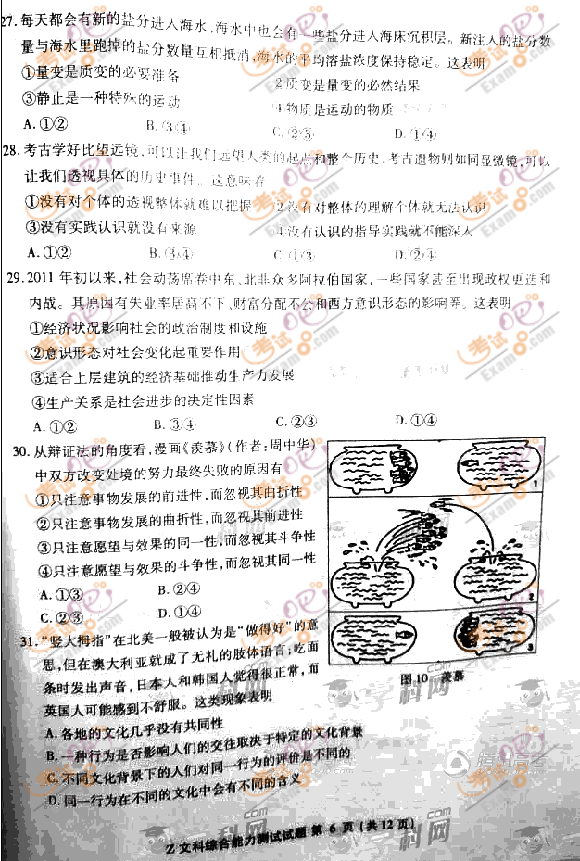 27.每天都会有新的盐分进入海水,海水中也会有一些盐分进入海床沉积层。新注入的盐分数
量与海水里跑掉的盐分数量互相抵消,海水的平均溶盐浓度保持稳定。这表明
①量变是质变的必要准备 ②质变是量变的必然结果
③静止是一种特殊的运动 ④物质是运动的物质
A.①② B.③④ C.②③ D.①④
28.考古学好比望远镜,可以让我们远望人类的起点和整个历史,考古遗物则如同显微镜,可以
让我们透视具体的历史事件。这意味着
①没有对个体的透视整体就难以把握 ②没有对整体的理解个体就无法认识
③没有实践认识就没有来源 ④没有认识的指导实践就不能深入
A.①② B.③④ C.①③ D.②④
29.2011年初以来,社会动荡席卷中东、北非众多阿拉伯国家,一些国家甚至出现政权更迭和
内战。其原因有失业率居高不下、财富分配不公和西方意识形态的影响等。这表明
①经济状况影响社会的政治制度和设施
②意识形态对社会变化起重要作用
③适合上层建筑的经济基础推动生产力发展
④生产关系是社会进步的决定性因素
A.①② B.③④ C.②③ D.①④
30.从辩证法的角度看,漫画《羡慕》(作者:周中华)
中双方改变处境的努力最终失败的原因有
①只注意事物发展的前进性,而忽视其曲折性
②只注意事物发展的曲折性,而忽视其前进性
③只注意愿望与效果的同一性,而忽视其斗争性
④只注意愿望与效果的斗争性,而忽视其同一性
A.①③ B.②④
C.②③ D.①④
1
2
3
图10 羡慕
31.“竖大拇指”在北美一般被认为是“做得好”的意
思,但在澳大利亚就成了无礼的肢体语言;吃面
条时发出声音,日本人和韩国人觉得很正常,而
英国人可能感到不舒服。这类现象表明
A.各地的文化几乎没有共同性
B.一种行为是否影响人们的交往取决于特定的文化背景
C.不同文化背景下的人们对同一行为的评价是不同的
D.同一行为在不同的文化中会有不同的含义
Z文科综合能力测试试题 第 6 页(共12页)